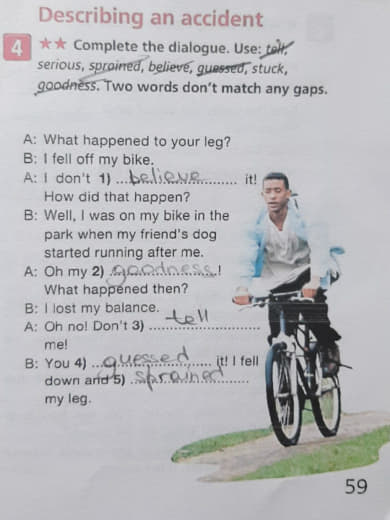 Describing an accident
4 ★★ Complete the dialogue. Use: tell,
serious, sprained, believe, guessed, stuck,
goodness. Two words don't match any gaps.
A: What happened to your leg?
B: I fell off my bike.
A: I don't 1) believe it!
How did that happen?
B: Well, I was on my bike in the
park when my friend's dog
started running after me.
A: Oh my 2) goodness!
What happened then?
B: I lost my balance.
A: Oh no! Don't 3) tell
me!
B: You 4) guessed it! I fell
down and 5) sprained
my leg.
59